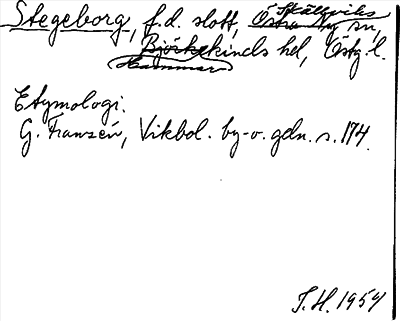 Stegeborg, f.d. slott, Östra Ny sn,
Skällviks
Björkekinds hd, Östg. l.
Hammar
Etymologi:
G. Franzén, Vikbol. by- o. gdn. s. 174.
T.H. 1954